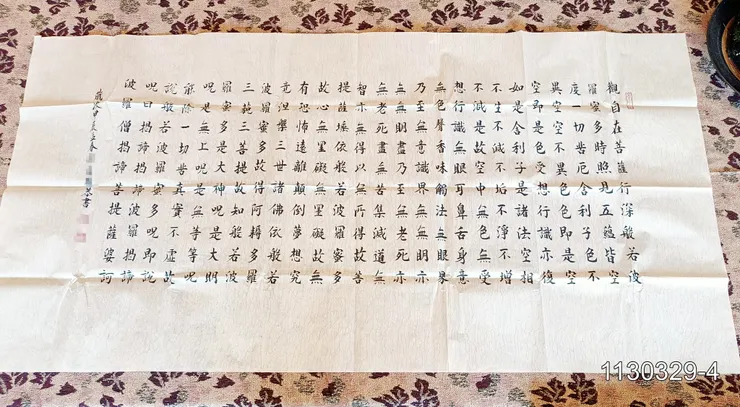 觀自在菩薩行深般若波
羅蜜多時照見五蘊皆空
度一切苦厄舍利子色不
異空空不異色色即是空
空即是色受想行識亦復
如是舍利子是諸法空相
不生不滅不垢不淨不增
不減是故空中無色無受
想行識無眼耳鼻舌身意
無色聲香味觸法無眼界
乃至無意識界無無明亦
無無明盡乃至無老死亦
無老死盡無苦集滅道無
智亦無得以無所得故菩
提薩埵依般若波羅蜜多
故心無罣礙無罣礙故無
有恐怖遠離顛倒夢想究
竟涅槃三世諸佛依般若
波羅蜜多故得阿耨多羅
三藐三菩提故知般若波
羅蜜多是大神呪是大明
呪是無上呪是無等等呪
能除一切苦真實不虛故
說般若波羅蜜多呪即說
呪曰揭諦揭諦波羅揭諦
波羅僧揭諦菩提薩婆訶
歲次甲辰 春 恭書
1130329-4